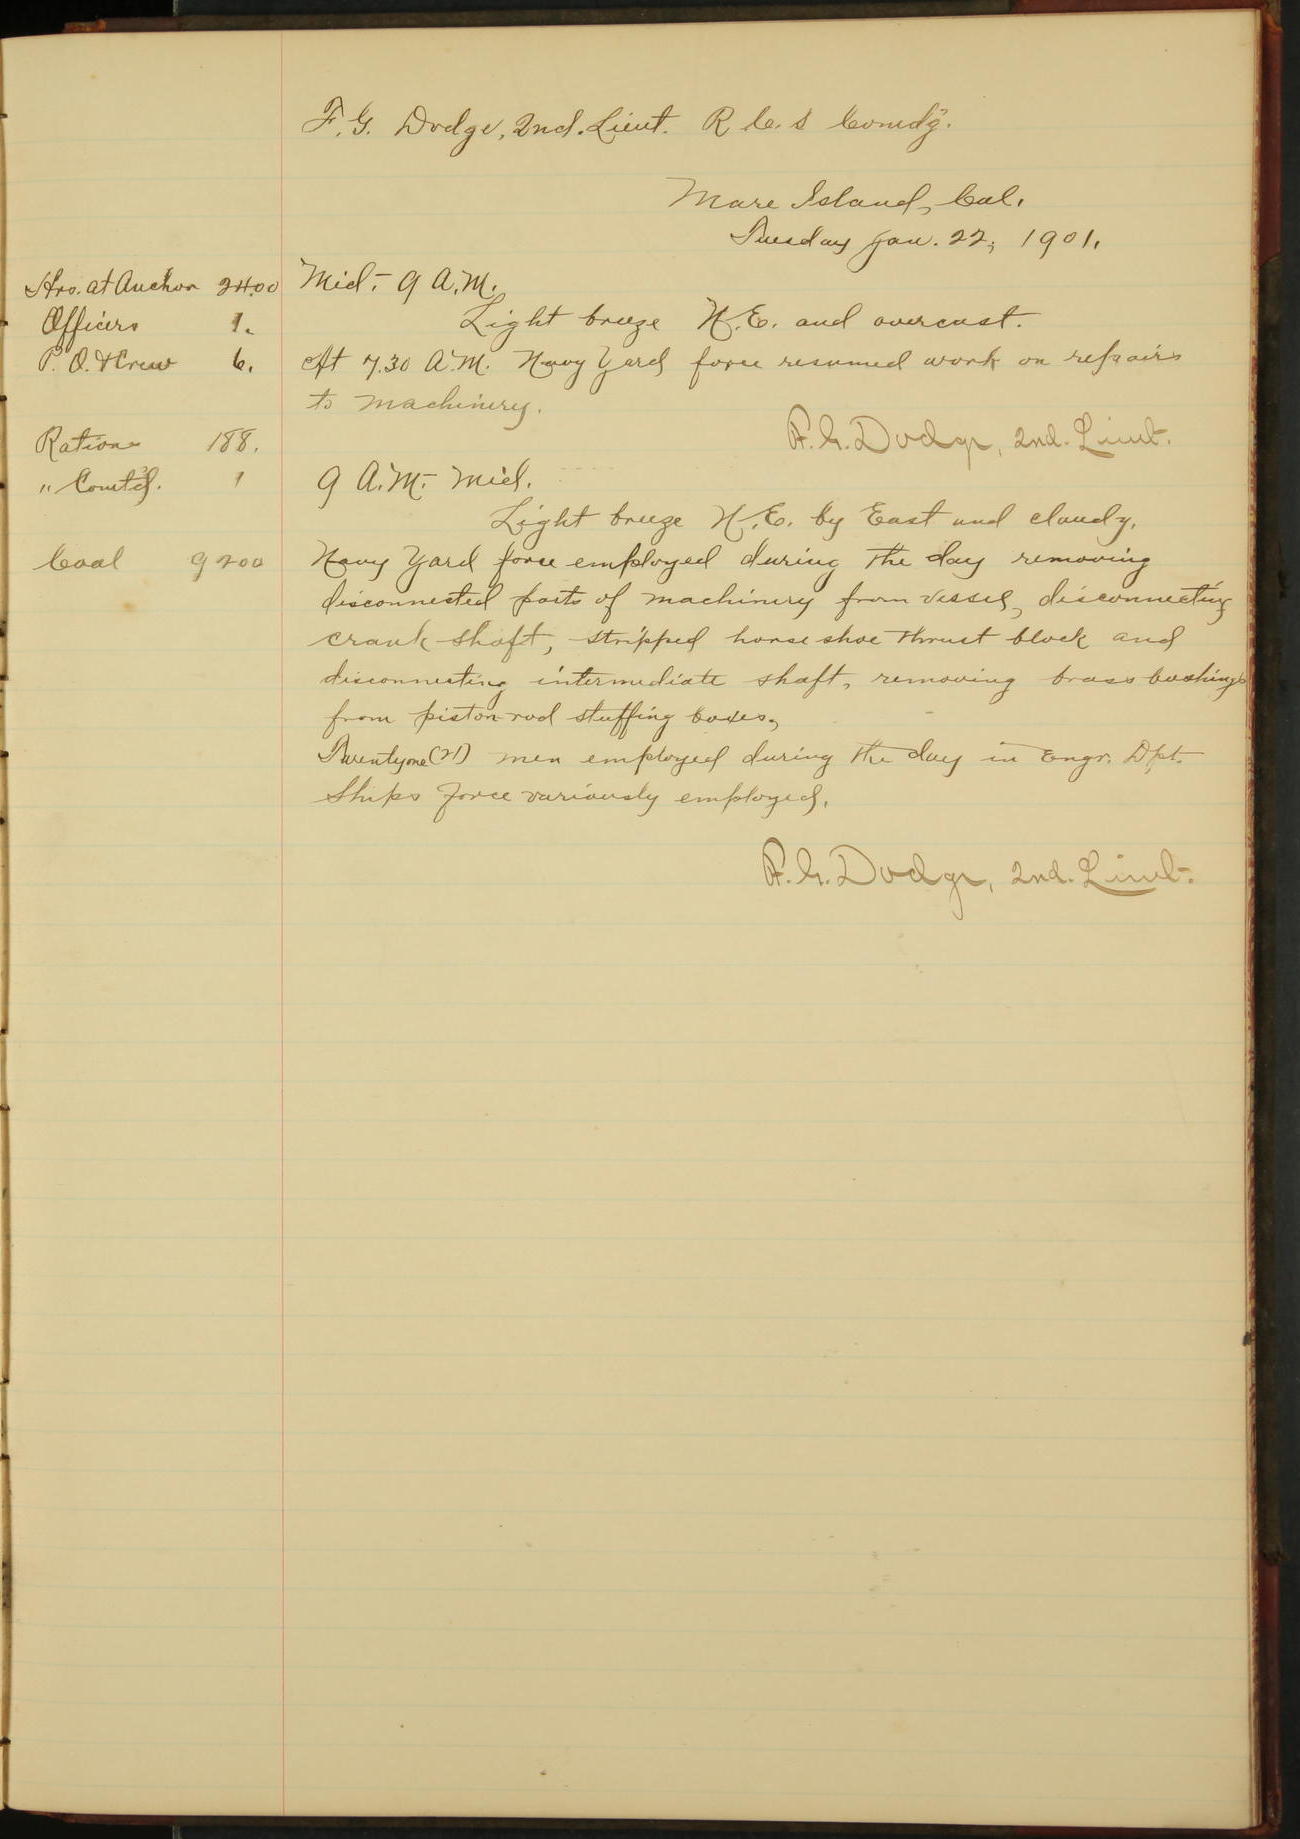 F. G. Dodge, 2nd. Lieut. R. C. S Comdg.
Mare Island, Cal.
Tuesday Jan. 22, 1901.
Hrs. at Anchor 24.00
Officers 1.
P. O. & Crew 6.
Rations 188.
" Comt'd. 1
Coal 9200
Mid. - 9 A.M.
Light breeze N.E. and overcast.
At 7.30 A.M. Navy Yard force resumed work on repairs
to machinery.
F. G. Dodge, 2nd. Lieut.
9 A.M. - Mid.
Light breeze N.E. by East and cloudy.
Navy Yard force employed during the day removing
disconnected parts of machinery from vessel, disconnecting
crank shaft, stripped horse shoe thrust block and
disconnecting intermediate shaft, removing brass bushings
from piston rod stuffing boxes,
Twentyone (21) men employed during the day in Engr. Dpt.
Ships force variously employed.
F. G. Dodge, 2nd. Lieut.